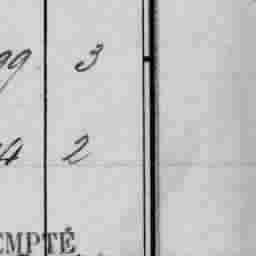 99 3
4 2
EMPTÉ